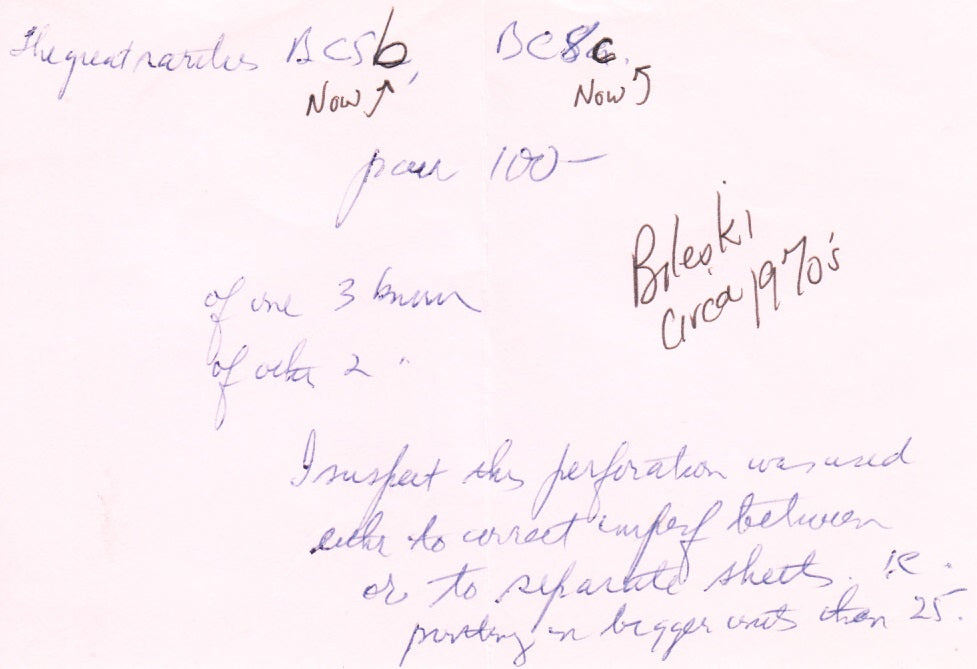 The great rarities BC5b, BC8c.
Now↑ Now↑
pair 100—
Bileski
circa 1970's
of one 3 known
of other 2 "
I suspect this perforation was used
either to correct imperf between
or to separate sheets. ie.
printing in bigger units than 25.